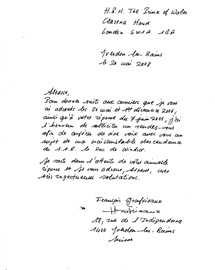 H.R.H. The Prince of Wales
Clarence House
London SW1A 1BA
Yverdon-les-Bains
le 20 mai 2008
Messire,
Pour donner suite aux courriers que je vous
ai adressés les 31 mai et 1er décembre 2007,
ainsi qu'à votre réponse du
l'honneur de solliciter un rendez-vous
afin de vous voir avec vous au
sujet de ma descendance
de S.A.R. le Duc de Windsor.
Je reste dans l'attente de votre aimable
réponse et je vous adresse, Messire, mes
très respectueuses salutations.
François
18, rue de l'Indépendance
1400 Yverdon-les-Bains
Suisse